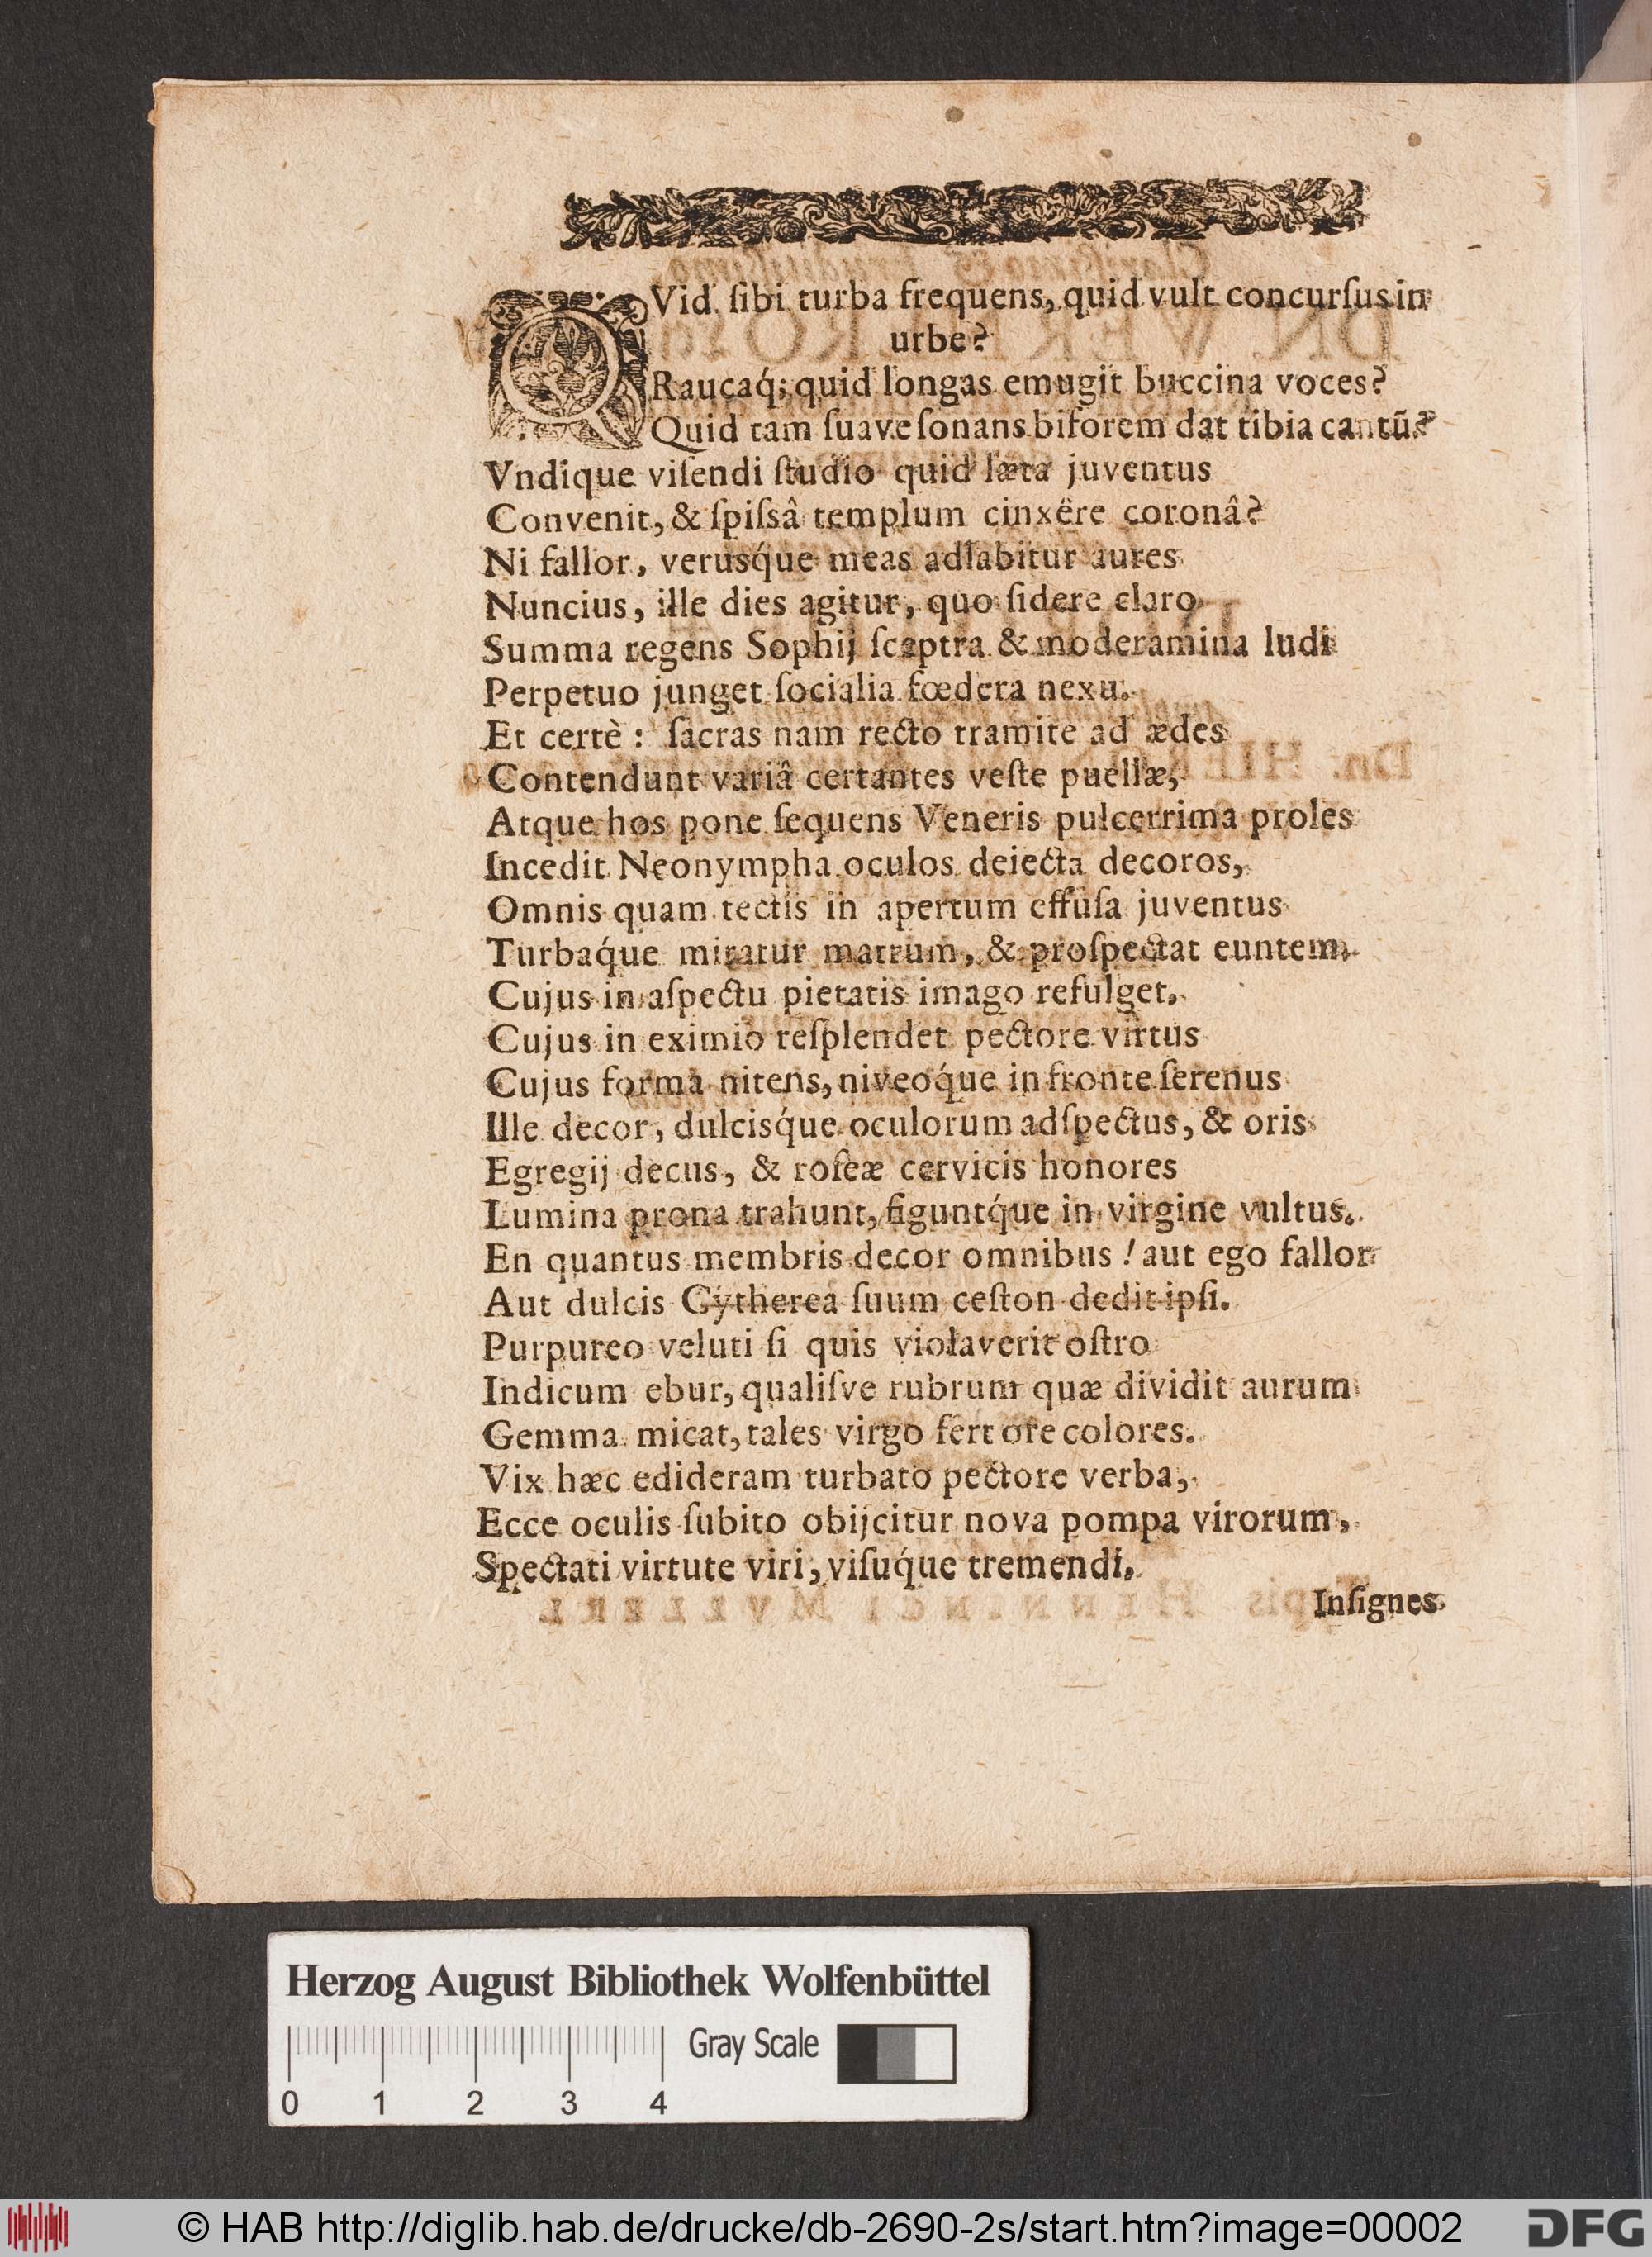 QVid ſibi turba frequens, quid vult concurſus in
urbe?
Raucaq́; quid longas emugit buccina voces?
Quid tam ſuave ſonans biforem dat tibia cantũ?
Vndique viſendi ſtudio quid læta juventus
Convenit, & ſpiſsâ templum cinxëre coronâ?
Ni fallor, verusq́ue meas adlabitur aures
Nuncius, ille dies agitur, quo ſidere claro
Summa regens Sophij ſceptra & moderamina ludi
Perpetuo junget ſocialia fœdera nexu.
Et certè: ſacras nam recto tramite ad ædes
Contendunt variâ certantes veſte puellæ,
Atque hos pone ſequens Veneris pulcerrima proles
Incedit Neonympha oculos deiecta decoros,
Omnis quam tectis in apertum effuſa juventus
Turbaq́ue miratur matrum, & proſpectat euntem,
Cujus in aſpectu pietatis imago refulget,
Cujus in eximio reſplendet pectore virtus
Cujus forma nitens, niveoq́ue in fronte ſerenus
Ille decor, dulcisq́ue oculorum adſpectus, & oris
Egregij decus, & roſeæ cervicis honores
Lumina prona trahunt, figuntq́ue in virgine vultus.
En quantus membris decor omnibus! aut ego fallor
Aut dulcis Cytherea ſuum ceſton dedit ipſi.
Purpureo veluti ſi quis violaverit oſtro
Indicum ebur, qualiſve rubrum quæ dividit aurum
Gemma micat, tales virgo fert ore colores.
Vix hæc edideram turbato pectore verba,
Ecce oculis ſubito obijcitur nova pompa virorum,
Spectati virtute viri, viſuq́ue tremendi,
Inſignes
Herzog August Bibliothek Wolfenbüttel
Gray Scale
0 1 2 3 4
© HAB http://diglib.hab.de/drucke/db-2690-2s/start.htm?image=00002
DFG